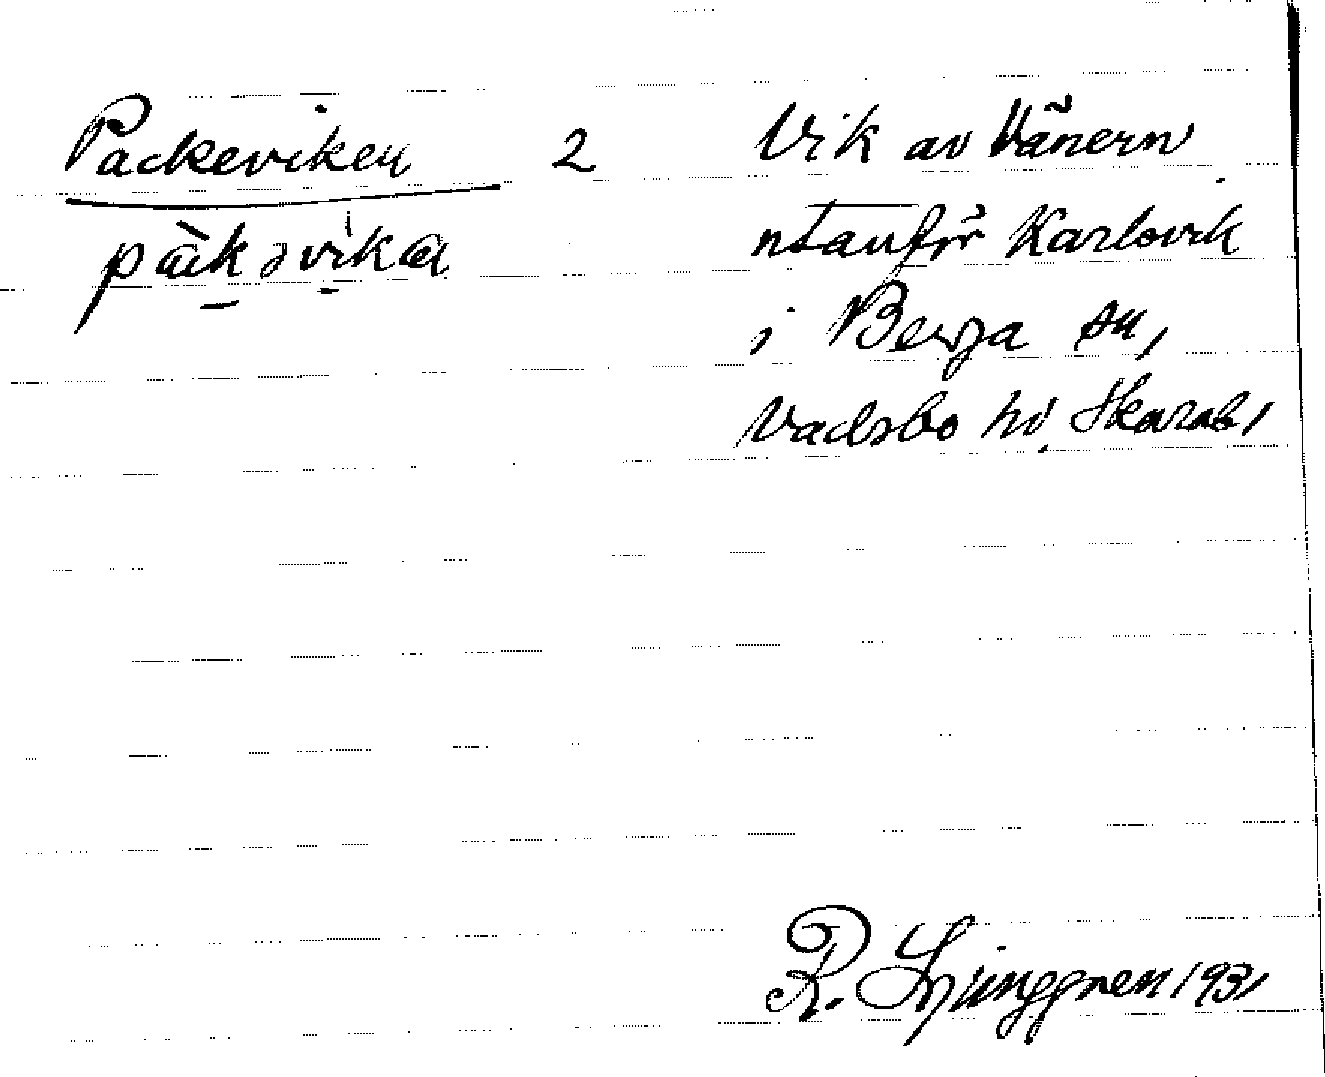 Packeviken 2 Vik av Vänern
utanför Karlsvik
i Berga sn,
Vadsbo hd, Skarab,
R. Ljunggren 1931